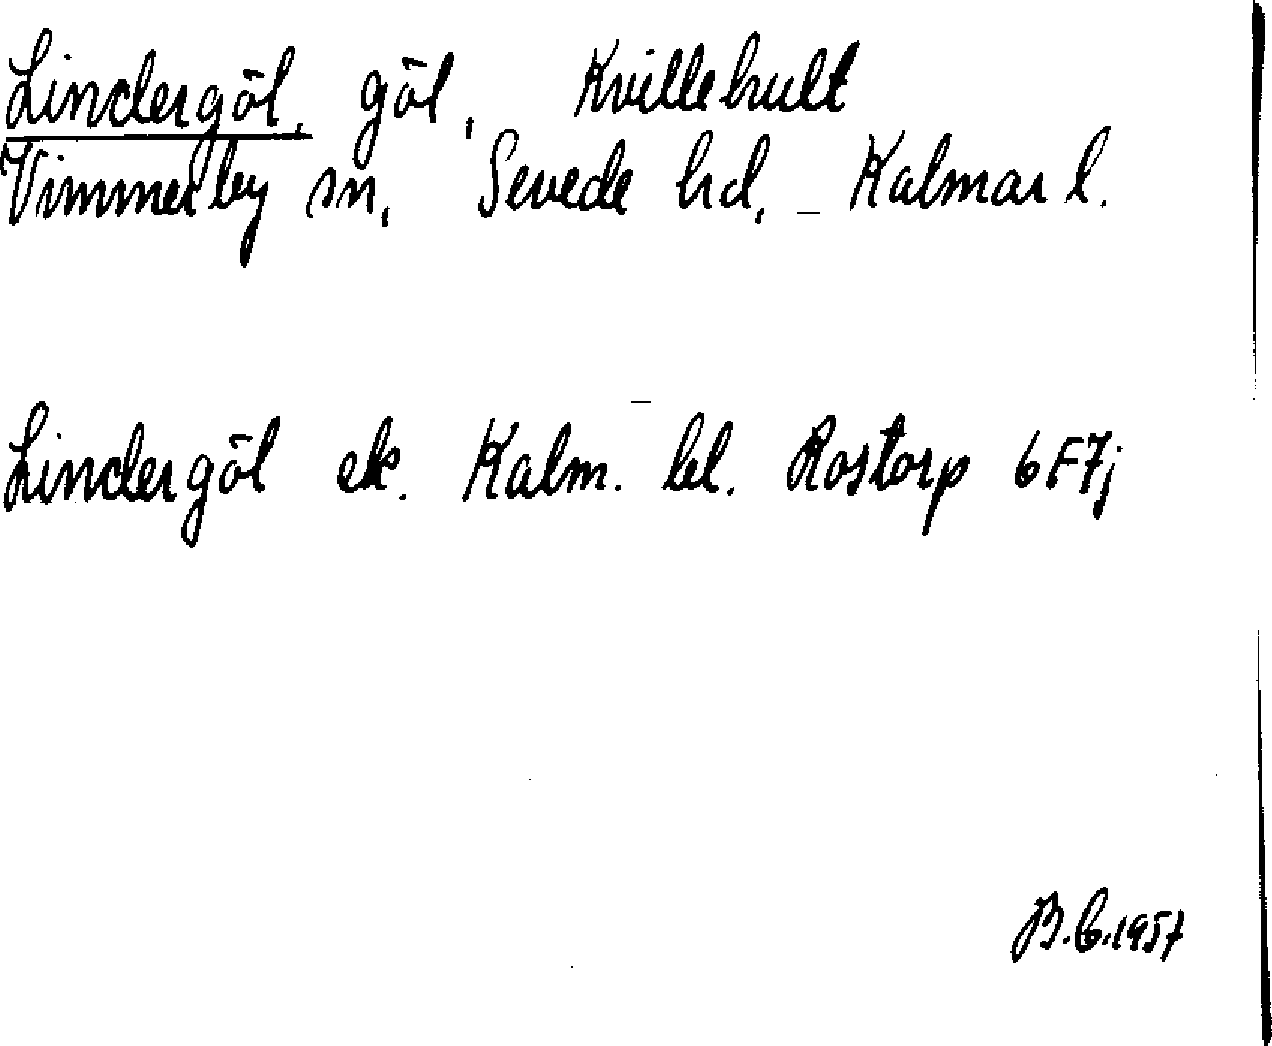 Lindergöl, göl, Kvillehult
Vimmerby sn, Sevede hd, Kalmar l.
Lindergöl ek. Kalm. bl. Rostorp 6F7j
B.C.1957